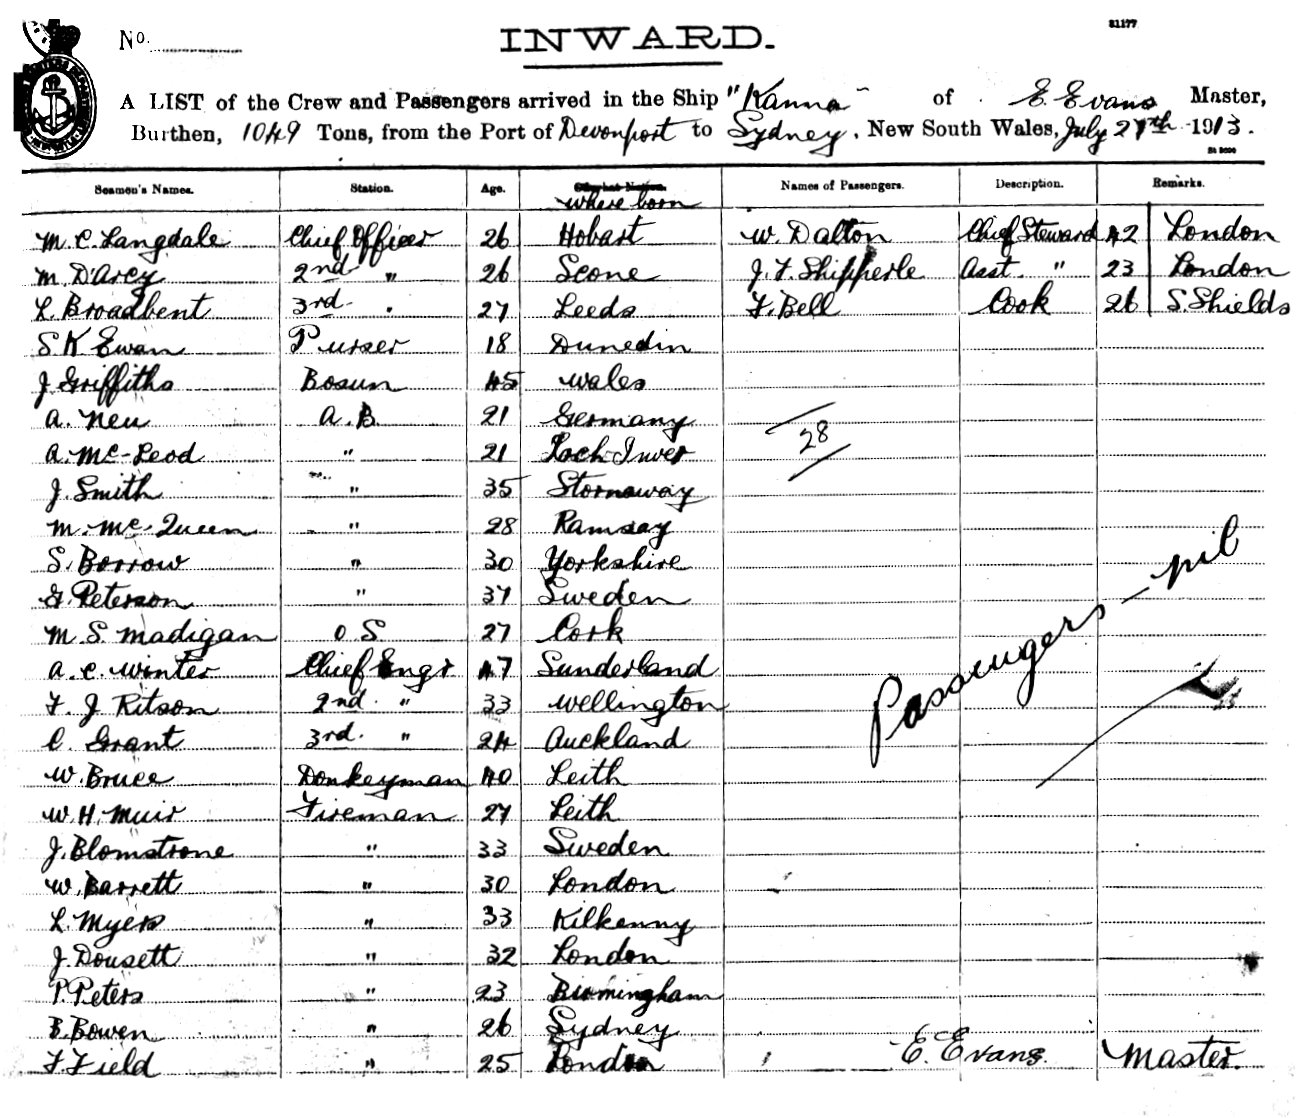 No.
INWARD.
31177
A LIST of the Crew and Passengers arrived in the Ship "Kanna" of E. Evans Master,
Burthen, 1049 Tons, from the Port of Devonport to Sydney, New South Wales, July 27th 1913.
Seamen's Names. Station. Age. where born Names of Passengers. Description. Remarks.
M. C. Langdale Chief Officer 26 Hobart W. Dalton Chief Steward 42 London
M. D'Arcy 2nd " 26 Scone J. F. Shipperle Asst. " 23 London
L. Broadbent 3rd " 27 Leeds F. Bell Cook 26 S. Shields
S K Ewan Purser 18 Dunedin
J. Griffiths Bosun 45 Wales
A. Neu A.B. 21 Germany
28
A. Mc-Leod " 21 Loch Inver
J. Smith " 35 Stornaway
M. Mc Queen " 28 Ramsay
S. Borrow " 30 Yorkshire
G. Peterson " 37 Sweden
M. S. Madigan O S. 27 Cork
A. C. Winter Chief Engr 47 Sunderland
F. J. Ritson 2nd " 33 Wellington
C. Grant 3rd. " 24 Auckland
Passengers - nil
W. Bruce Donkeyman 40 Leith
W. H. Muir Fireman 27 Leith
J. Blomstrone " 33 Sweden
W. Barrett " 30 London
L. Myers " 33 Kilkenny
J. Dousett " 32 London
P. Peters " 23 Birmingham
B. Bowen " 26 Sydney
F Field " 25 London
E. Evans. Master.